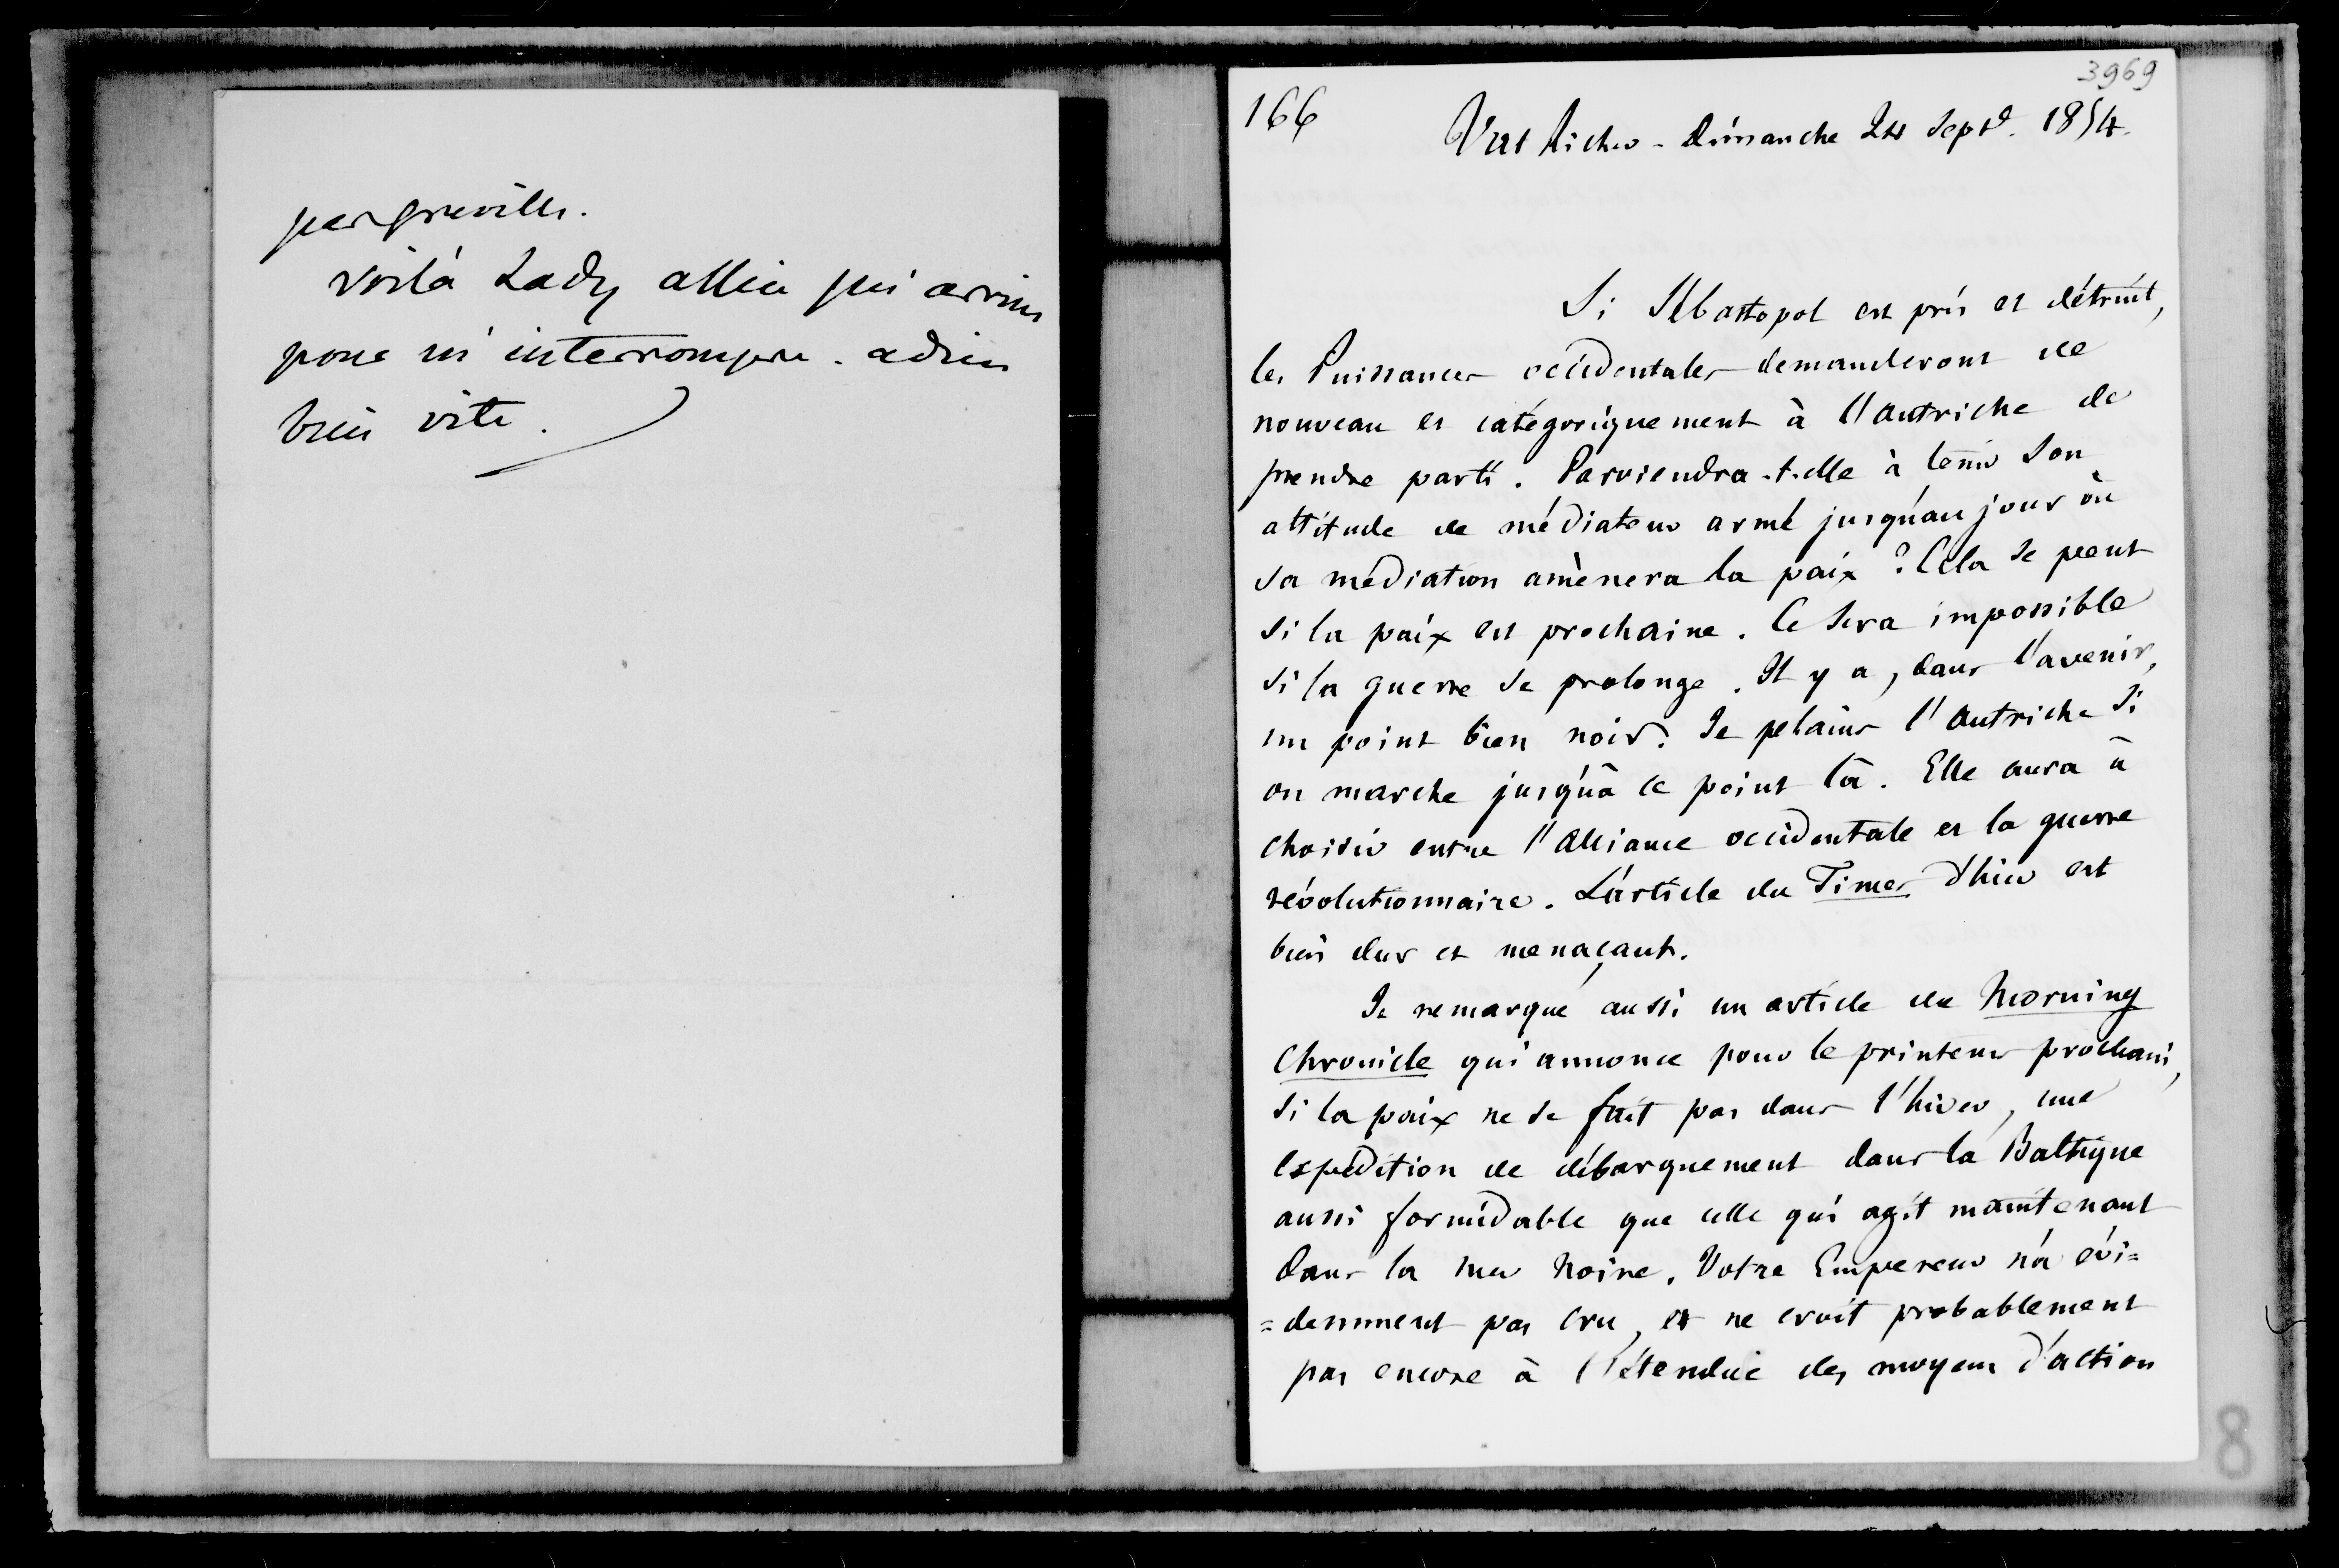 par Greville.
voilà Lady Allice qui arrive
pour m'interrompre. adieu
bien vite.
3969
166
Val Richer - Dimanche 24 Sept. 1854.
Si Sébastopol est pris et détruit,
les Puissances occidentales demanderont de
nouveau et catégoriquement à l'Autriche de
prendre parti. Parviendra-t-elle à tenir son
attitude de médiateur armé jusqu'au jour où
sa médiation amènera la paix ? Cela se peut
si la paix est prochaine. Ce sera impossible
si la guerre se prolonge. Il y a, dans l'avenir,
un point bien noir. Je plains l'Autriche si
on marche jusqu'à ce point là. Elle aura à
choisir entre l'alliance occidentale et la guerre
révolutionnaire. L'article du Times d'hier est
bien dur et menaçant.
Je remarque aussi un article du Morning
Chronicle qui annonce pour le printems prochain,
si la paix ne se fait pas dans l'hiver, une
expédition de débarquement dans la Baltique
aussi formidable que celle qui agit maintenant
dans la mer Noire. Votre Empereur n'a évi=
=demment pas cru, et ne croit probablement
pas encore à l'étendue des moyens d'action
8